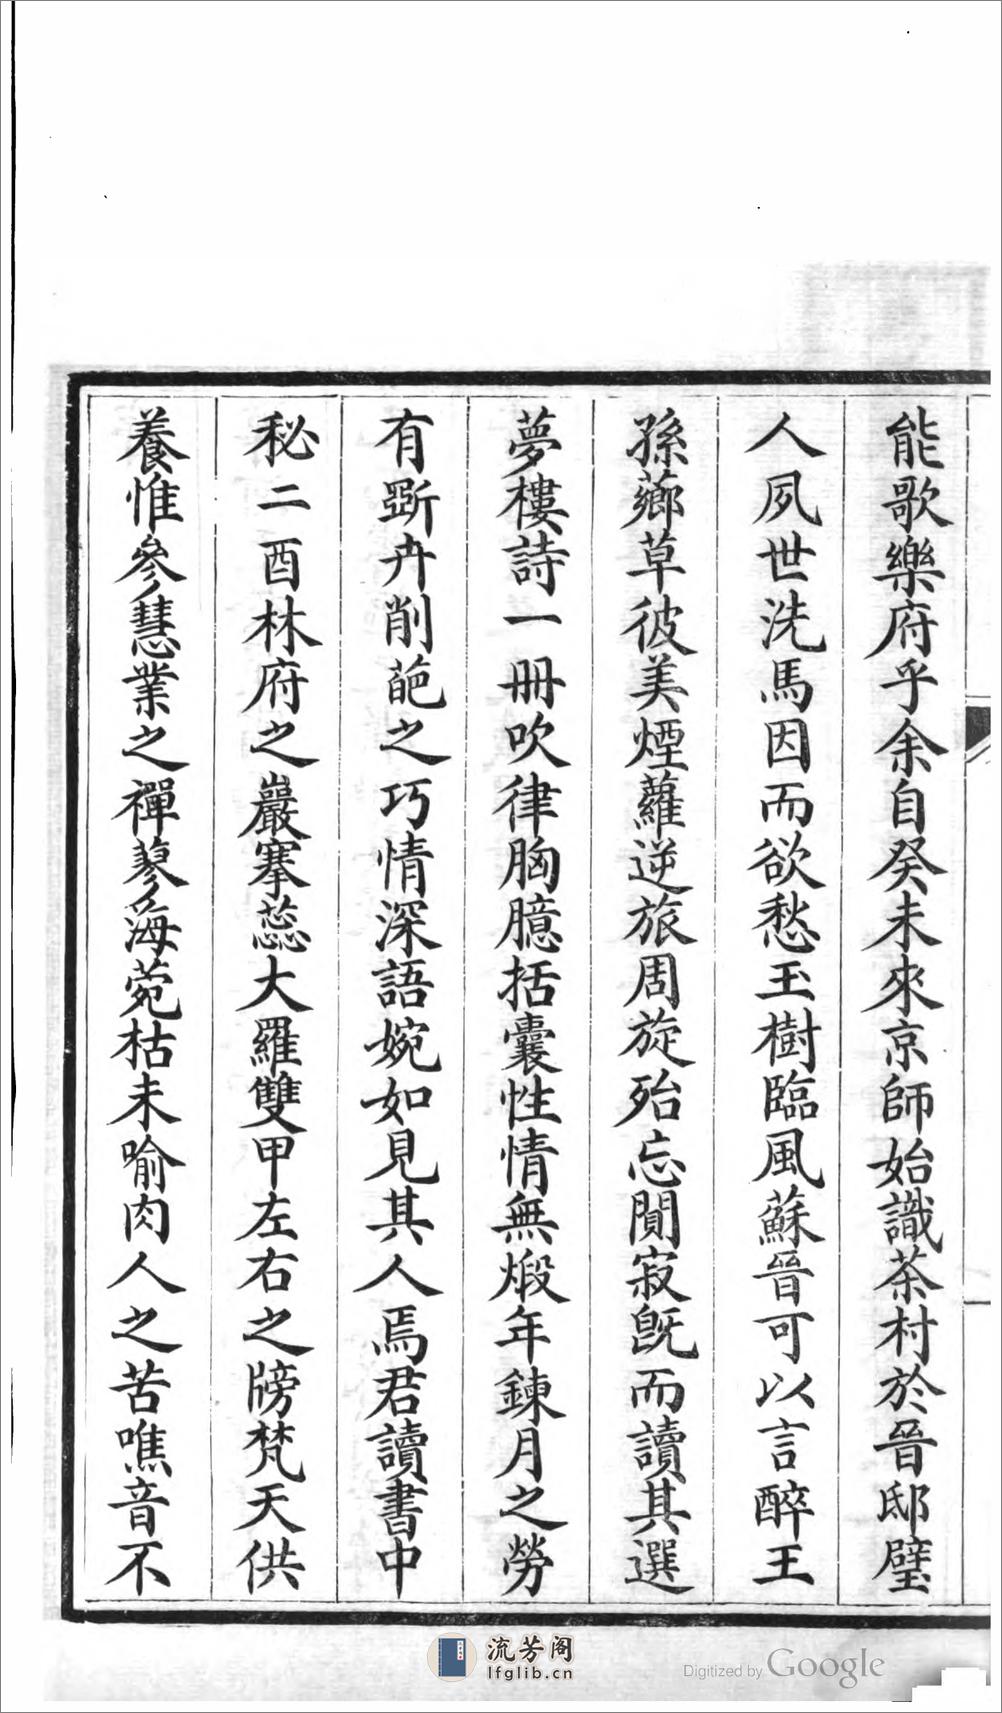 能歌樂府乎余自癸未來京師始識茶村於晉邸璧
人夙世洗馬因而欲愁玉樹臨風蘇晉可以言醉王
孫薌草彼美煙蘿逆旅周旋殆忘閴寂旣而讀其選
夢樓詩一冊吹律胸臆括囊性情無煅年鍊月之勞
有斲卉削葩之巧情深語婉如見其人焉君讀書中
秘二酉林府之巖搴蕊大羅雙甲左右之牓梵天供
養惟參慧業之禪蓼海菀枯未喻肉人之苦噍音不
流芳阁
lfglib.cn
Digitized by Google